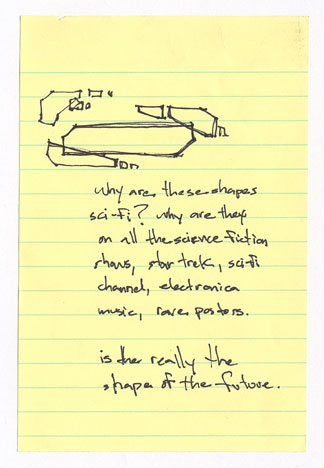 why are these shapes
sci-fi? why are they
on all the science fiction
shows, star trek, sci-fi
channel, electronica
music, rave posters.
is the really the
shape of the future.